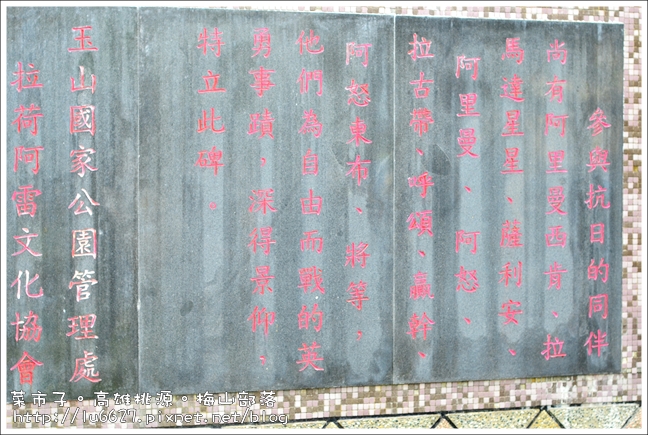 參與抗日的同伴
尚有阿里曼西肯、拉
馬達星星、薩利安、
阿里曼、阿怒、
拉古帶、呼頌、贏幹、
阿怒東布、將等，
他們為自由而戰的英
勇事蹟，深得景仰，
特立此碑。
玉山國家公園管理處
拉荷阿雷文化協會
菜市子。高雄桃源。梅山部落
http://lu6627.pixnet.net/blog